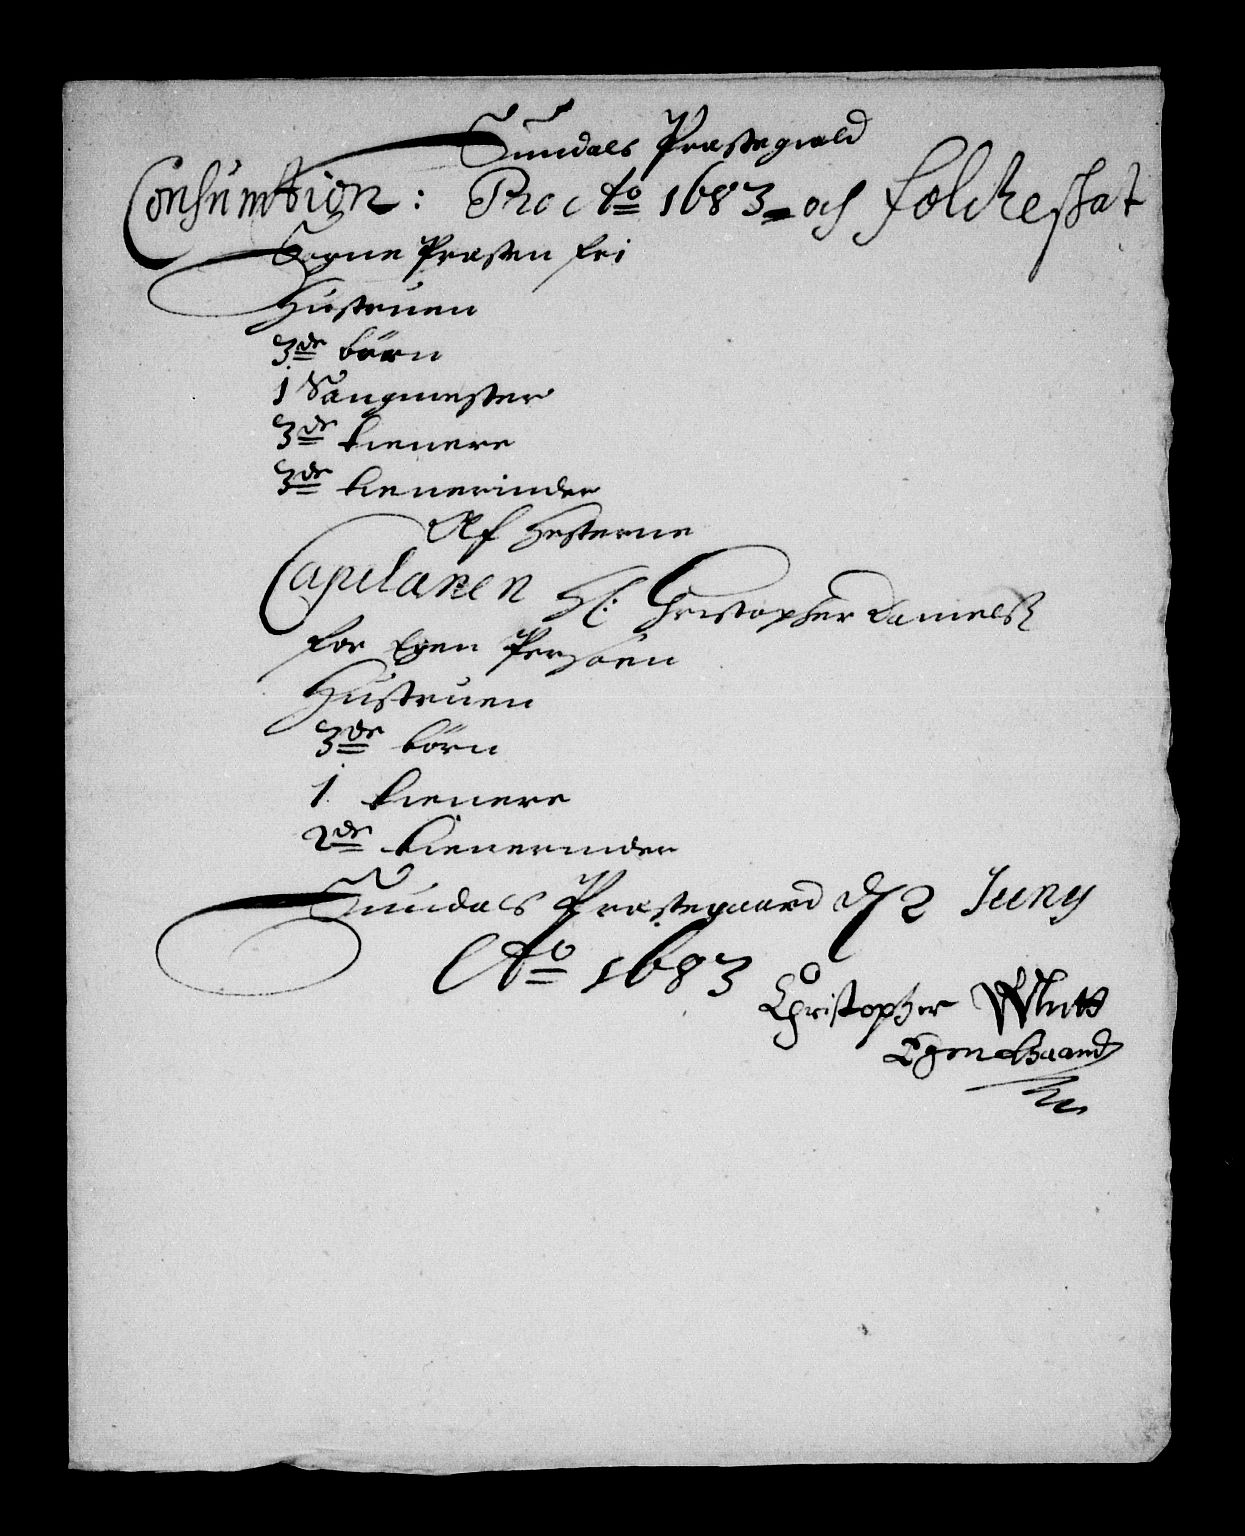 Sundals Præstegield
Consumtion: Pro Ao 1683 och folckeskat
Sogne Præsten fri
Hustruen
3de börn
1 Sangmester
3de tienere
3de tienerinder
Af Hesterne
Capelanen Hr: Christopher Danielß
for Egen Persoen
Hustruen
3de börn
1 tienere
2de tienerinder
Sundals Præstegaard d 2 Juny
Ao 1683
Christopher
Egen Haand